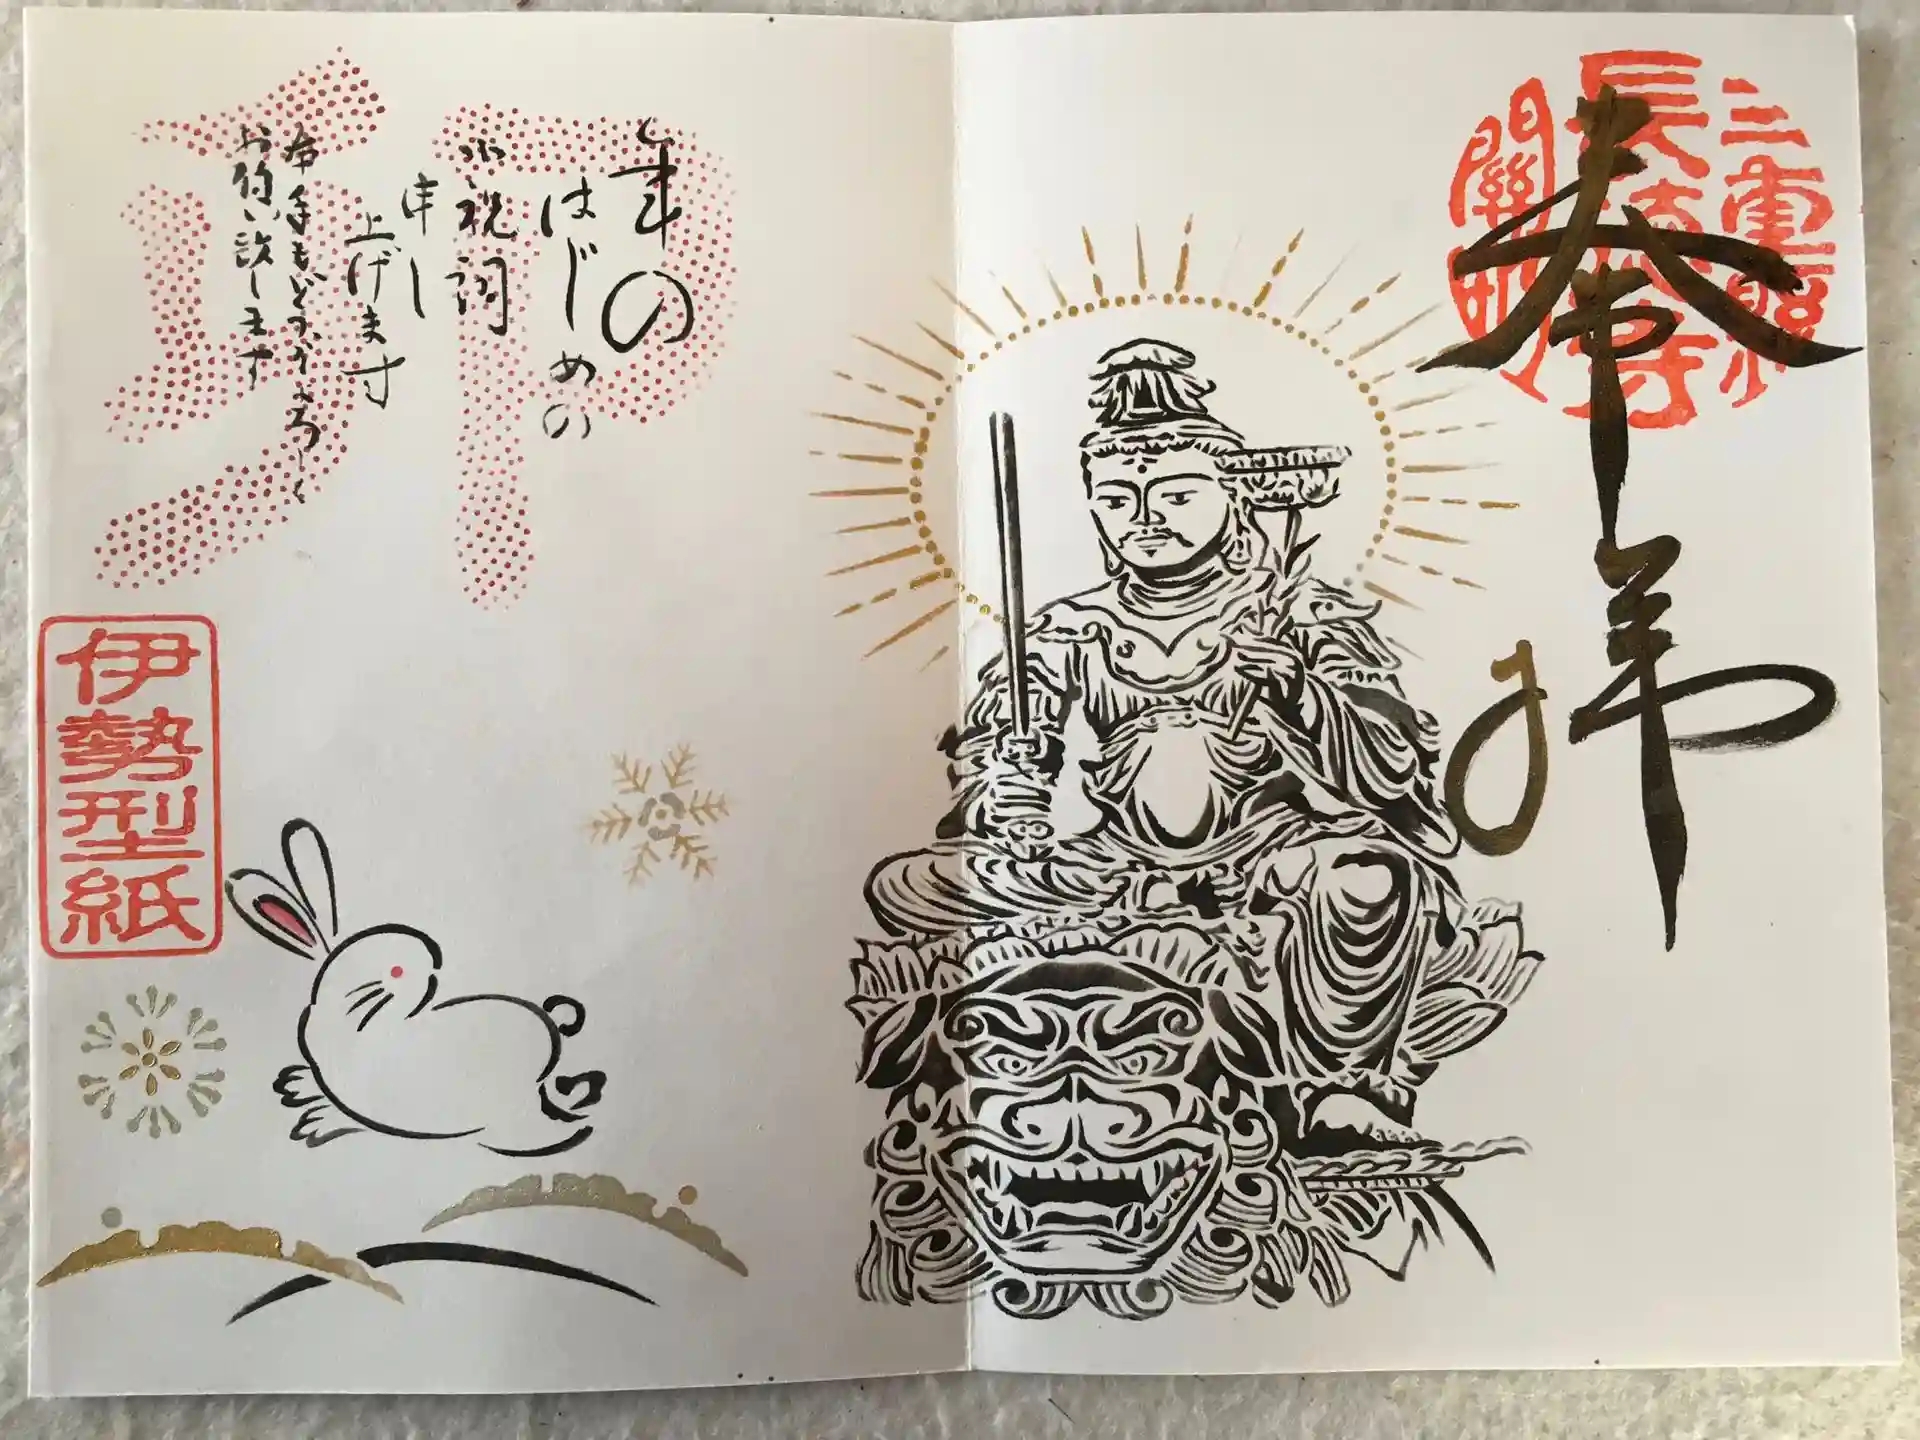 奉拝
三重縣
長徳寺
關町
年の
はじめの
御祝詞
申し
上げます
本年もどうぞよろしく
お伺い致します
卯
伊勢型紙